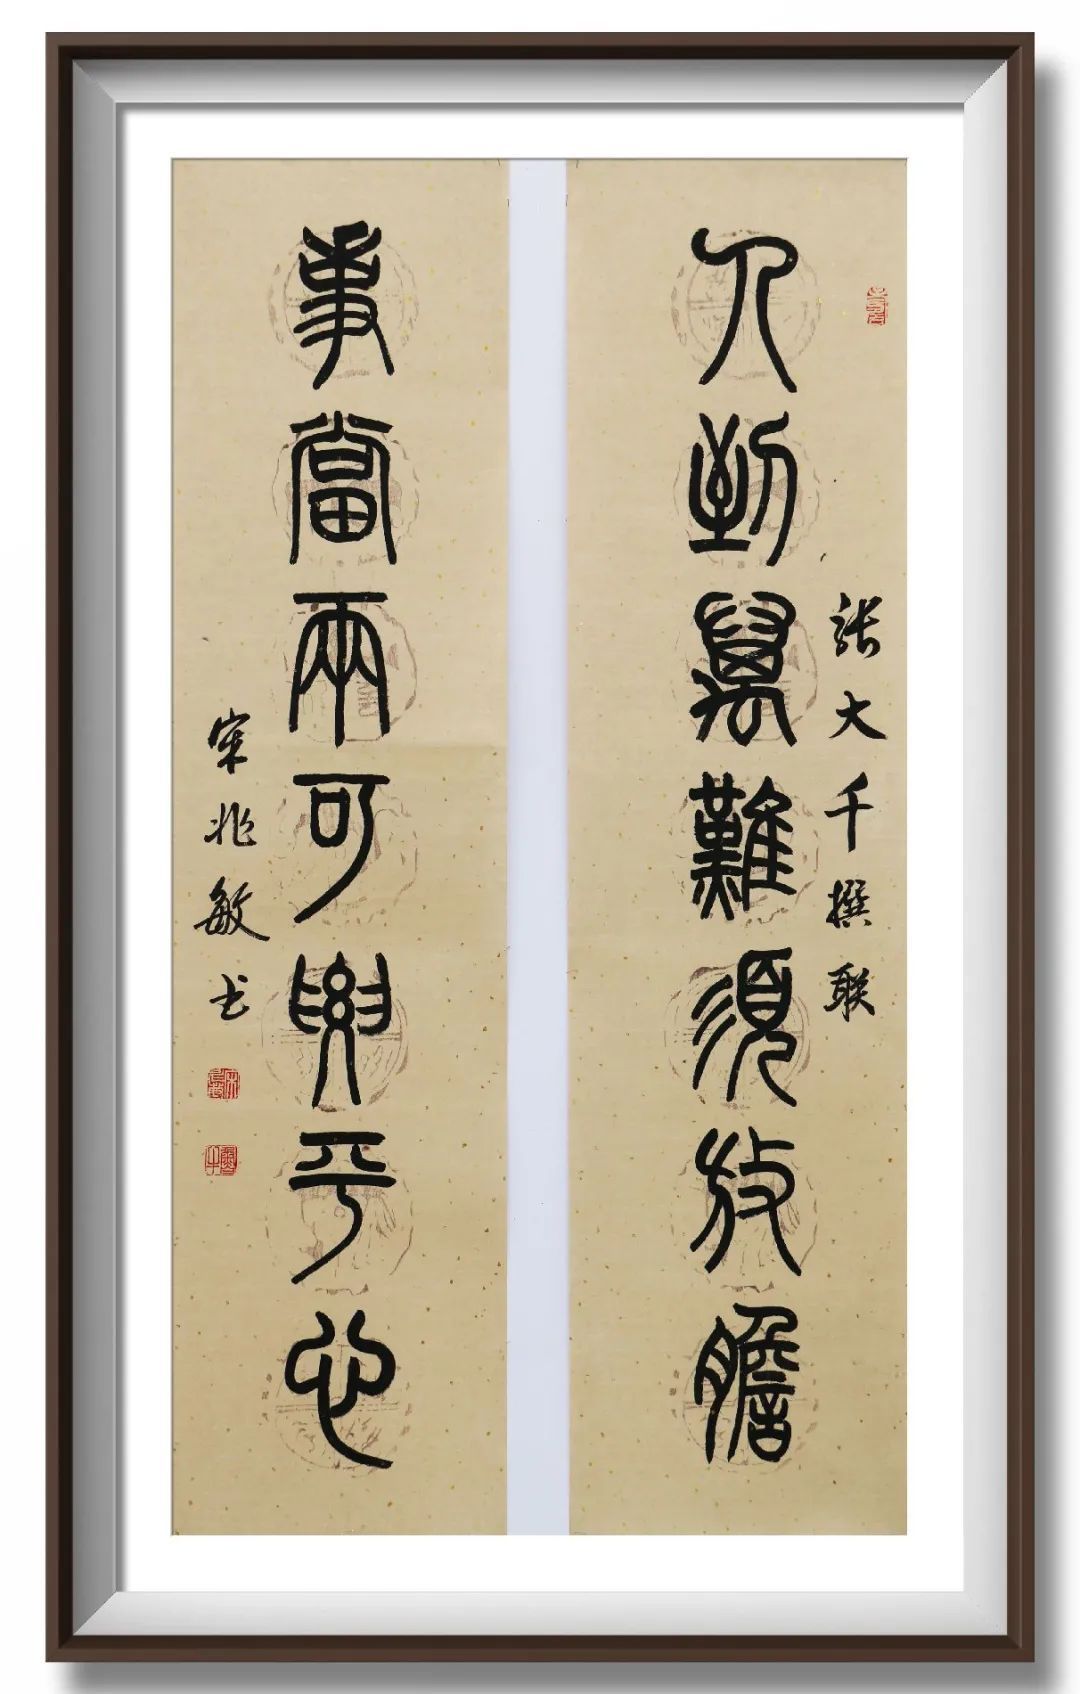 人到萬難須放膽
張大千撰联
事當兩可要平心
宋兆敏书